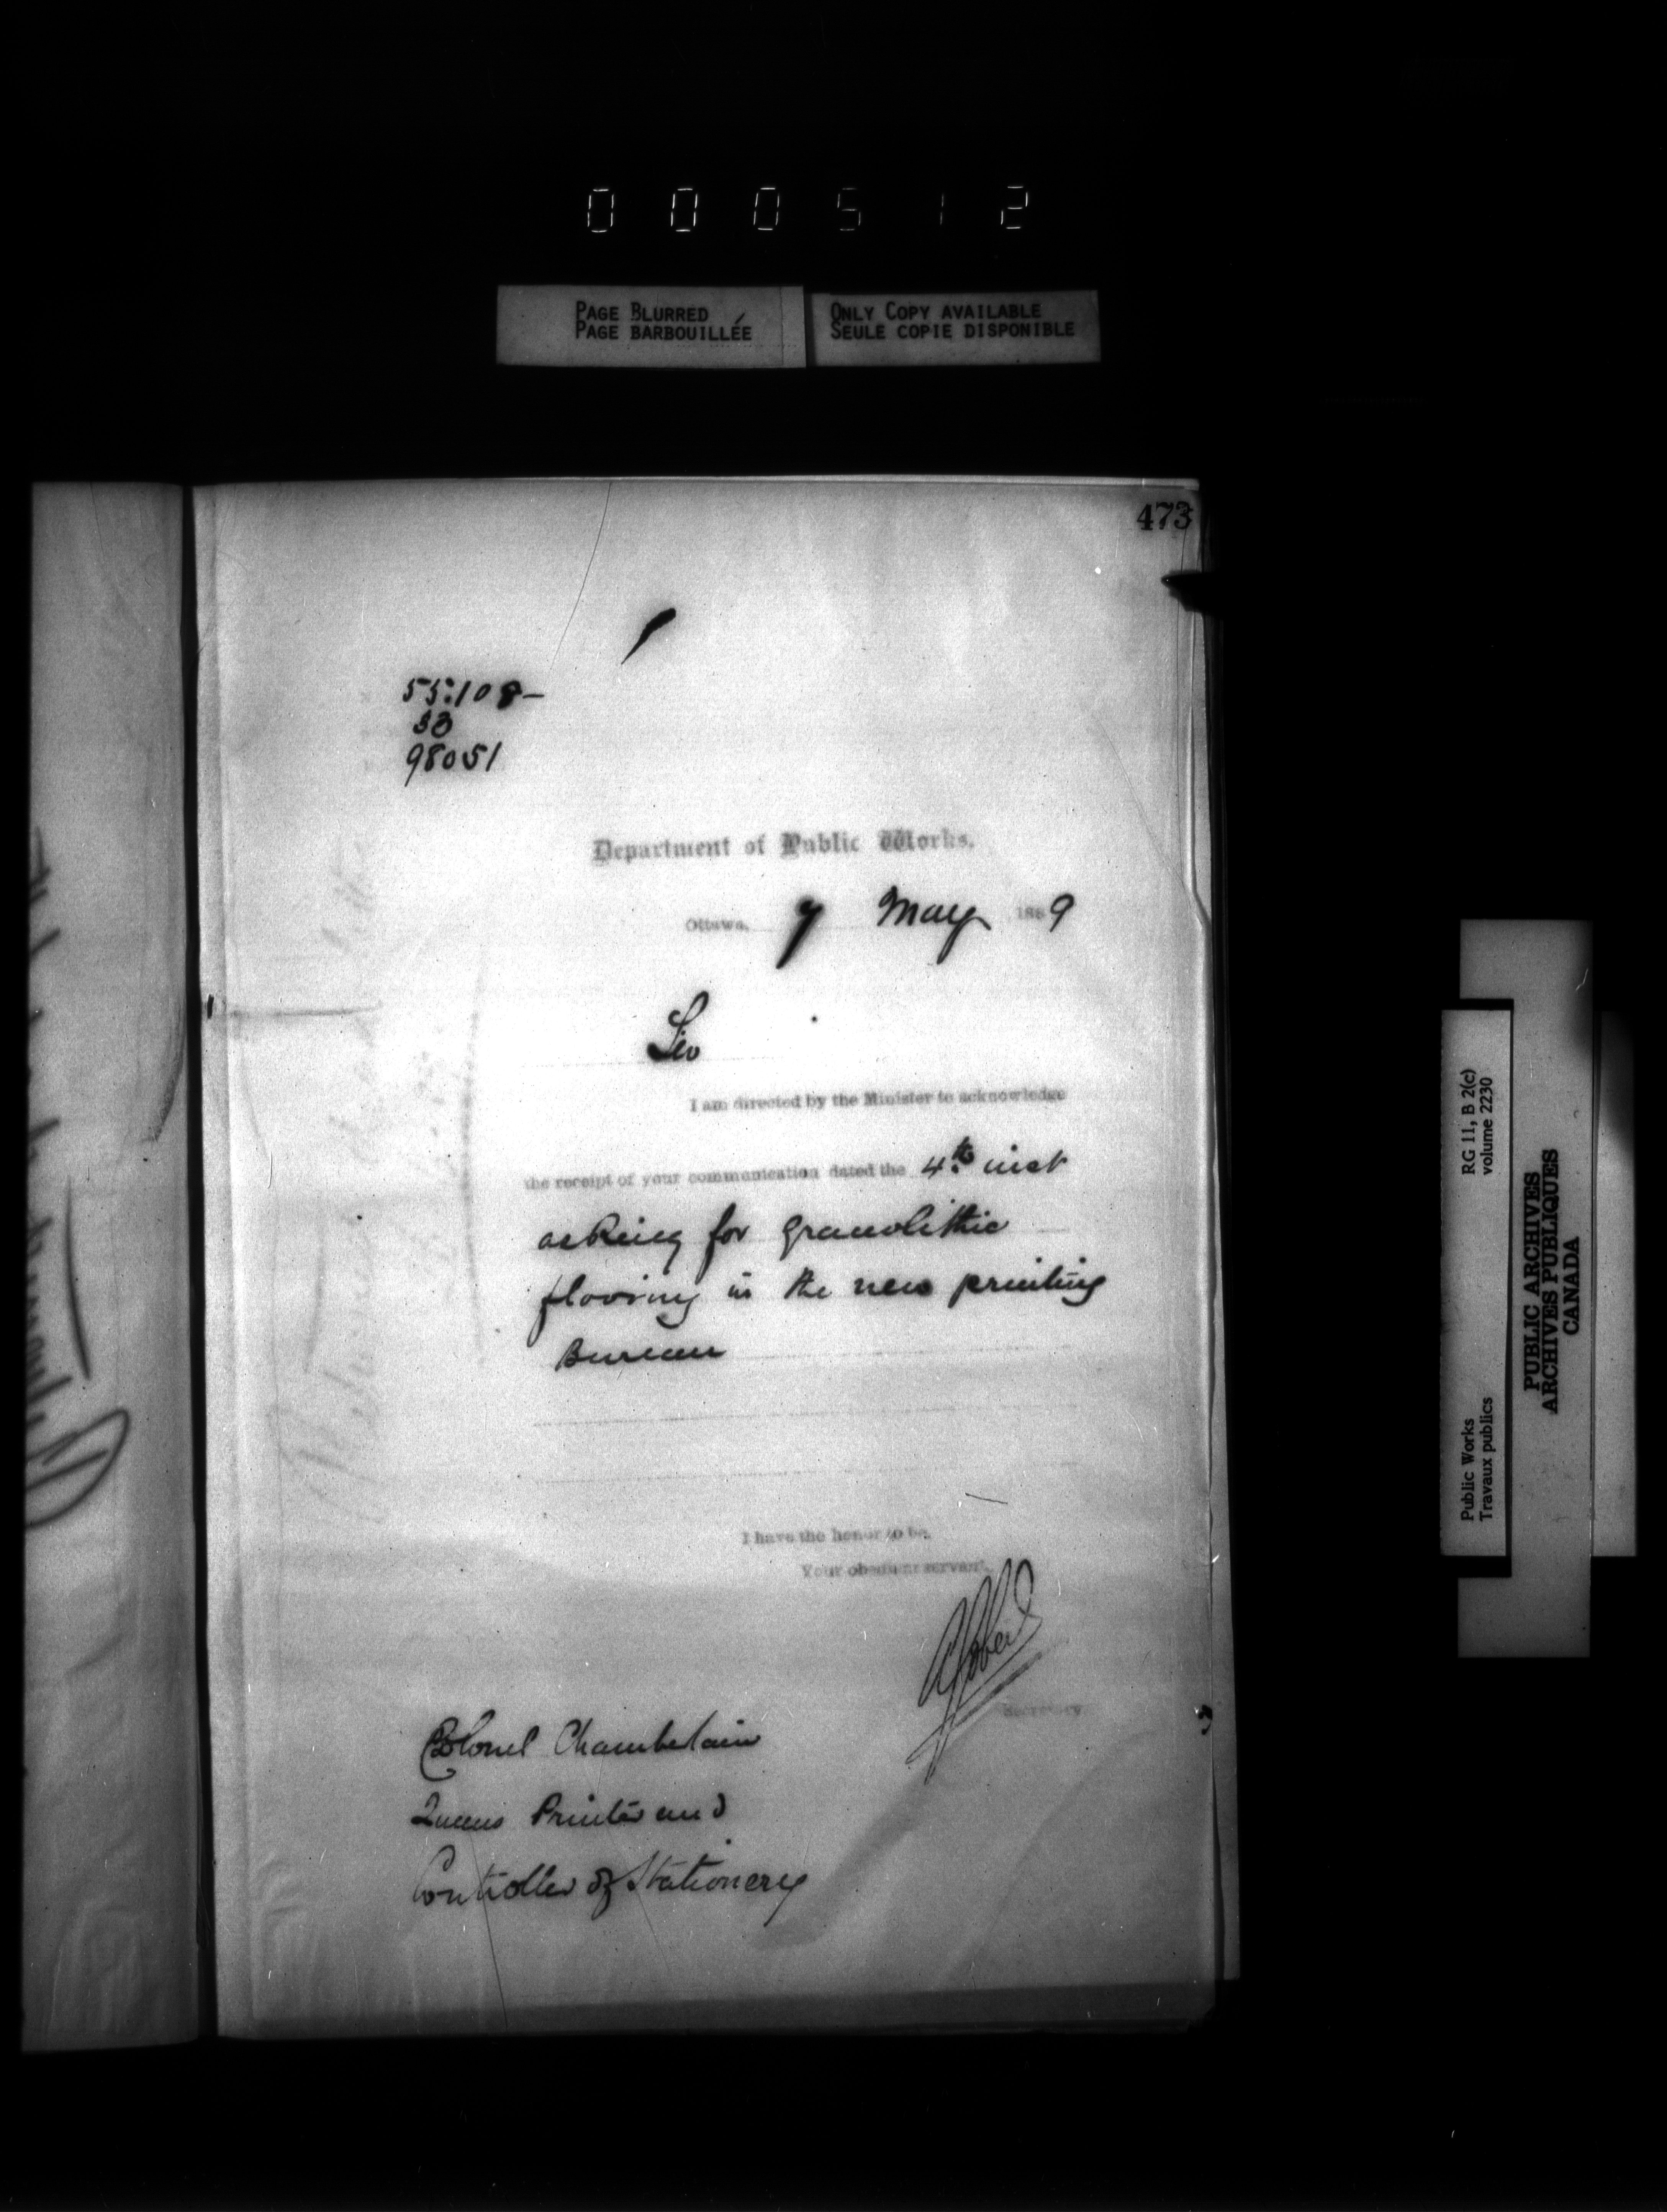 000512
PAGE BLURRED
PAGE BARBOUILLÉE
ONLY COPY AVAILABLE
SEULE COPIE DISPONIBLE
473
55:108-
33
98051
Department of Public Works.
Ottawa, 7 May 1889
Sir
I am directed by the Minister to acknowledge
the receipt of your communication dated the 4th inst
asking for Granolithic
flooring in the new printing
Bureau
I have the honor to be,
Your obedient servant,
Secretary
Colonel Chamberlain
Queens Printer and
Controller of Stationery
Public Works
Travaux publics
RG 11, B 2(c)
volume 2230
PUBLIC ARCHIVES
ARCHIVES PUBLIQUES
CANADA